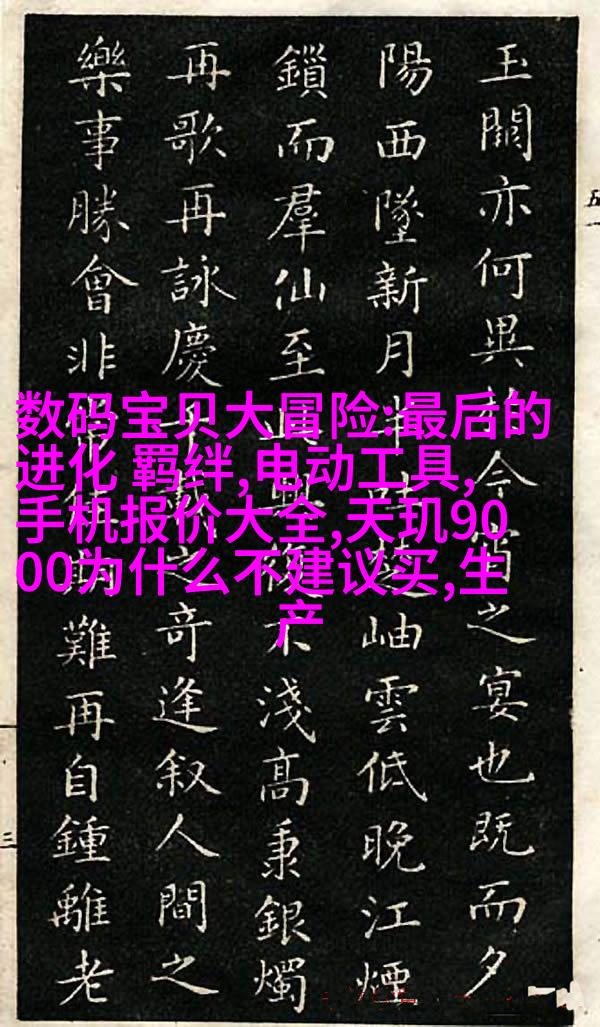 玉關亦何異今宵之宴也既而夕
陽西墜新月半岫雲低晚江煙
鎖而羣仙至興不淺高秉銀燭
再歌再詠慶之奇逢叙人間之
樂事勝會非難再自鍾離老
数码宝贝大冒险:最后的
进化 羁绊,电动工具,
手机报价大全,天玑90
00为什么不建议买,生
产
三